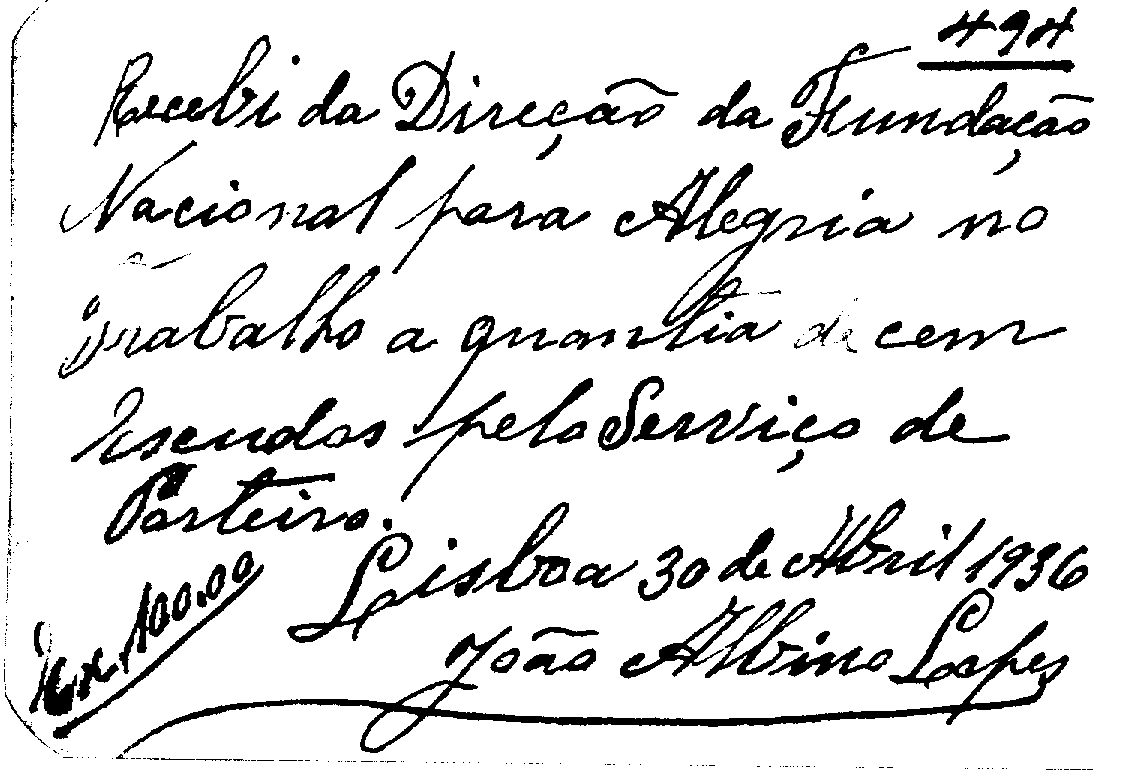 494
Recebi da Direção da Fundação
Nacional para Alegria no
Trabalho a quantia de cem
Escudos pelo Serviço de
Porteiro.
Lisboa 30 de Abril 1936
João Albino Lopes
100.00